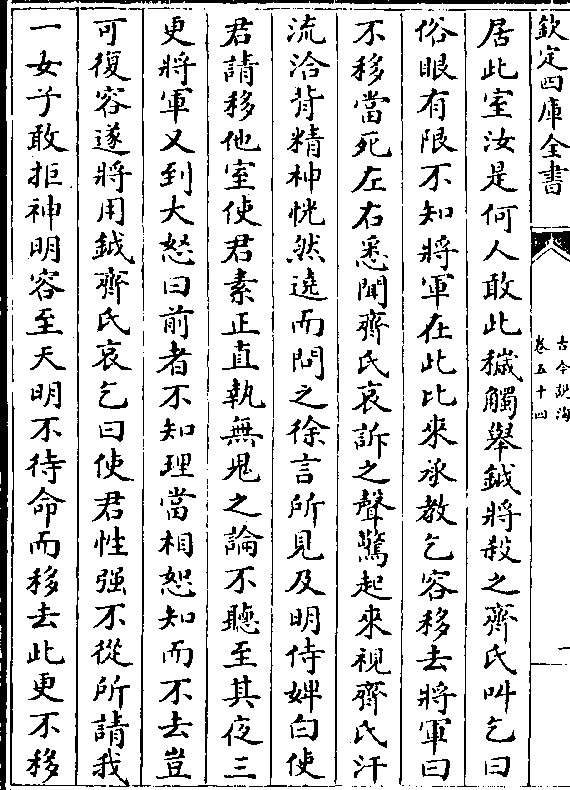 欽定四庫全書
古今說海
卷五十四
一
居此室汝是何人敢此穢觸舉鉞將殺之齊氏叫乞曰
俗眼有限不知將軍在此比來承教乞容移去將軍曰
不移當死左右悉聞齊氏哀訴之聲驚起來視齊氏汗
流洽背精神恍然遶而問之徐言所見及明侍婢白使
君請移他室使君素正直執無鬼之論不聽至其夜三
更將軍又到大怒曰前者不知理當相恕知而不去豈
可復容遂將用鉞齊氏哀乞曰使君性强不從所請我
一女子敢拒神明容至天明不待命而移去此更不移